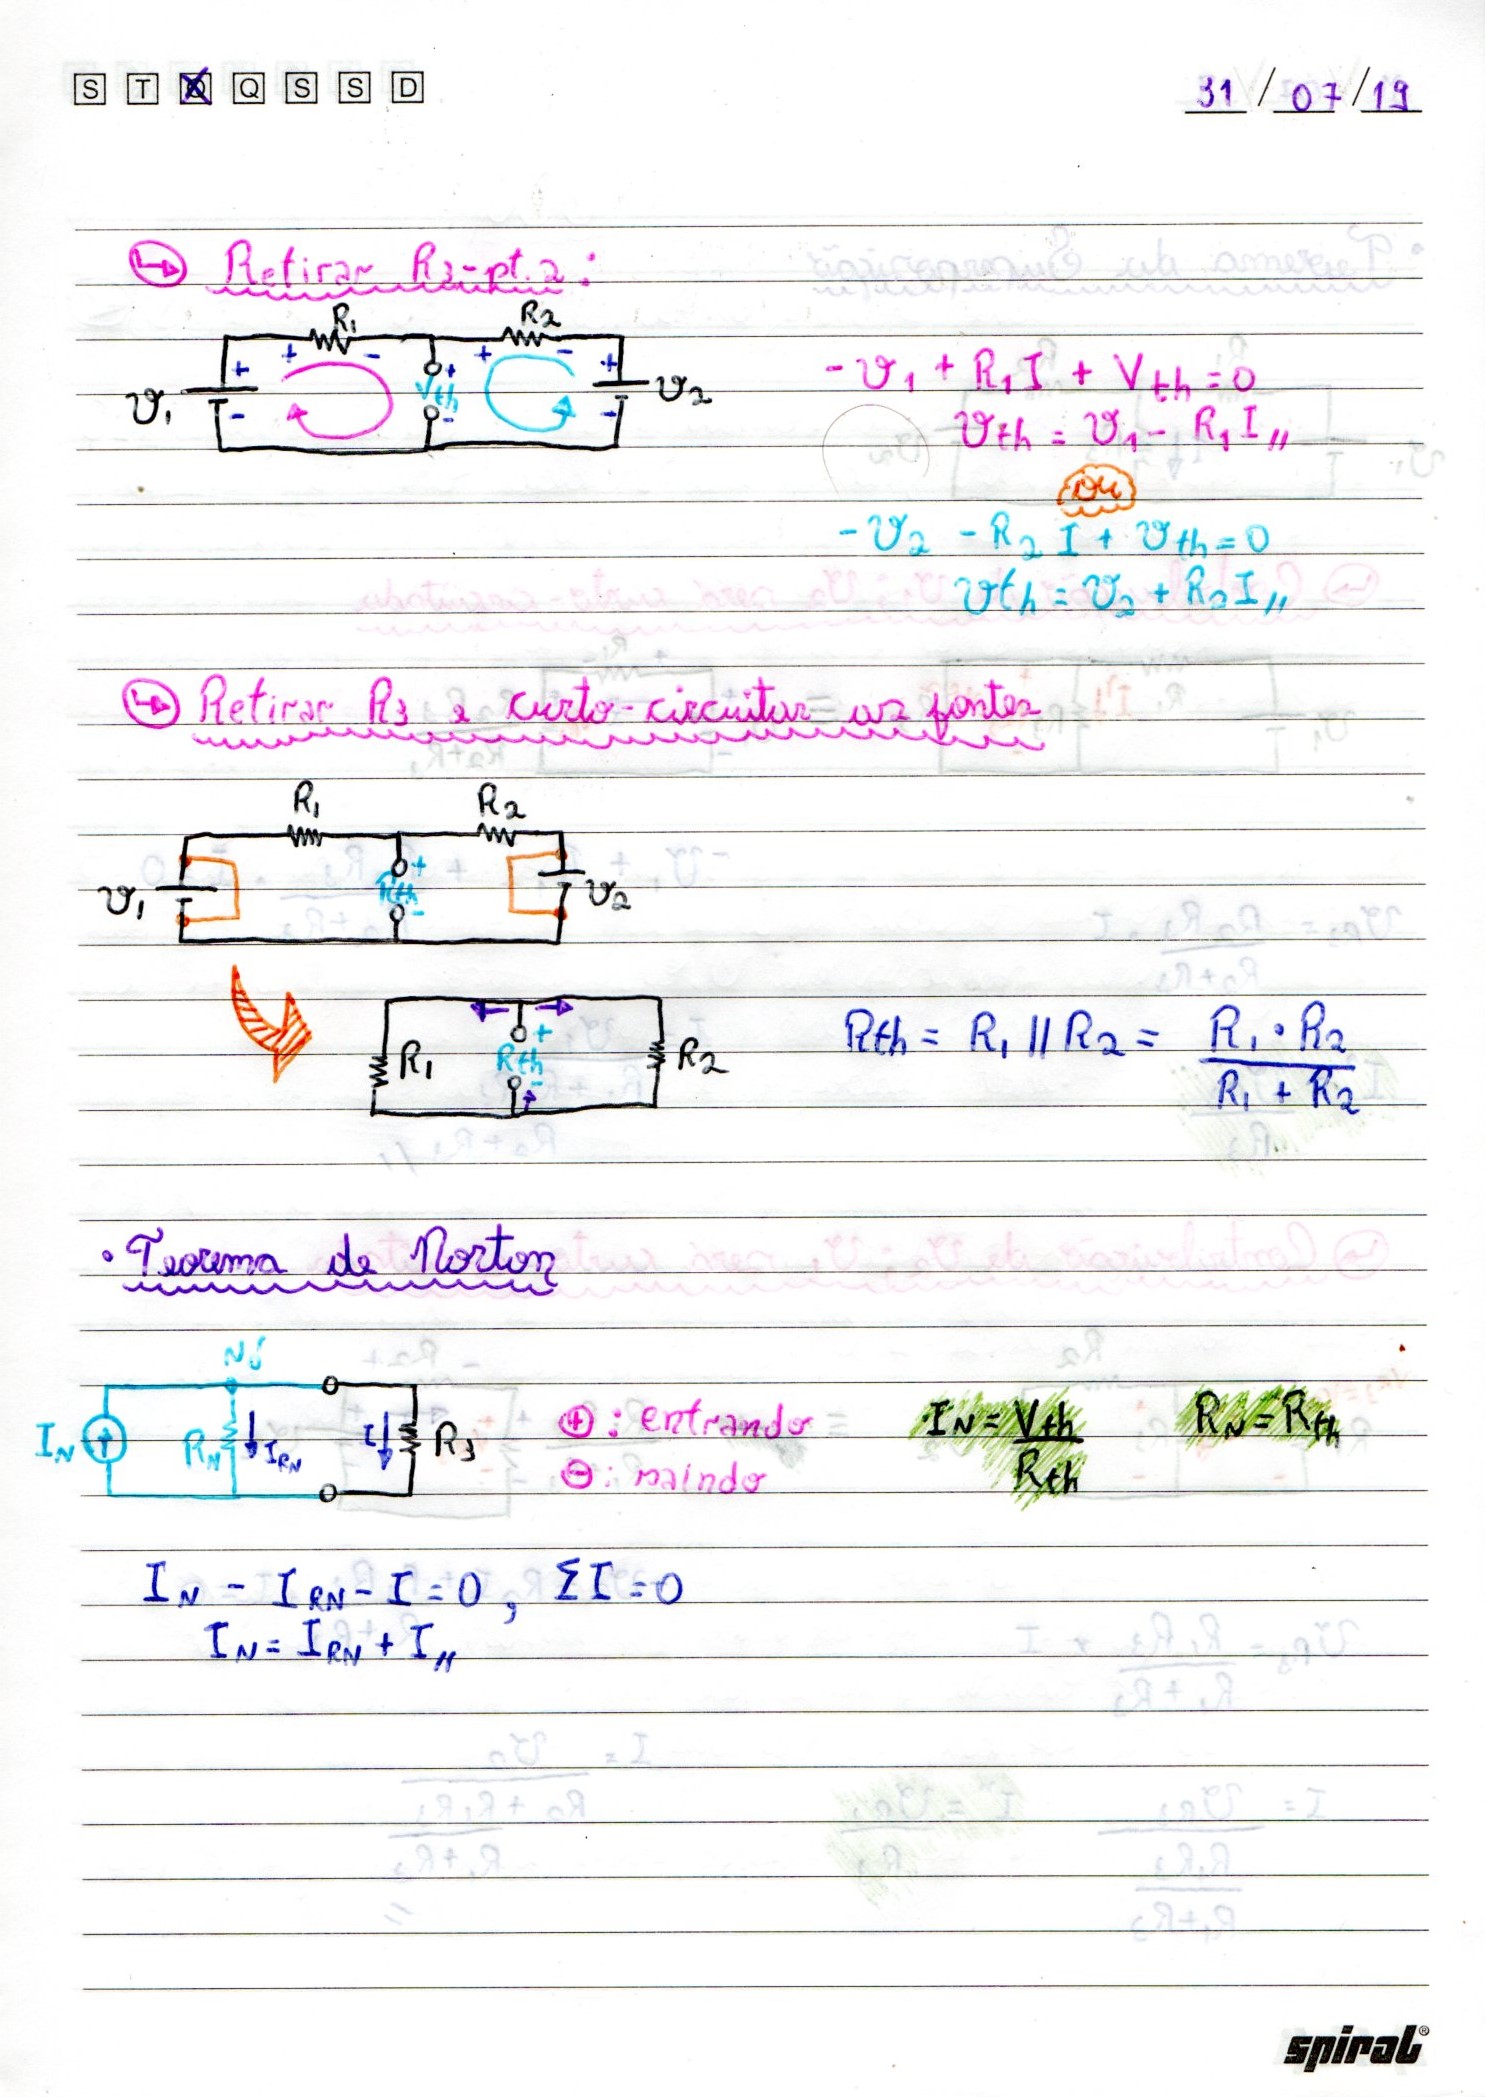 S T Q Q S S D 31/07/19
Retirar R3-pt.2:
R1 R2
+ - + -
+ + +
V1 Vth V2
- - -
-V1 + R1 I + Vth = 0
Vth = V1 - R1 I //
ou
-V2 - R2 I + Vth = 0
Vth = V2 + R2 I //
Retirar R3 e curto-circuitar as fontes
R1 R2
+
V1 Rth V2
-
+
R1 Rth R2
-
Rth = R1 // R2 = R1 · R2
R1 + R2
• Teorema de Norton
Nó
IN RN IRN I R3
⊕: entrando
⊖: saindo
IN = Vth
Rth
RN = Rth
IN - IRN - I = 0, ΣI = 0
IN = IRN + I //
spiral®